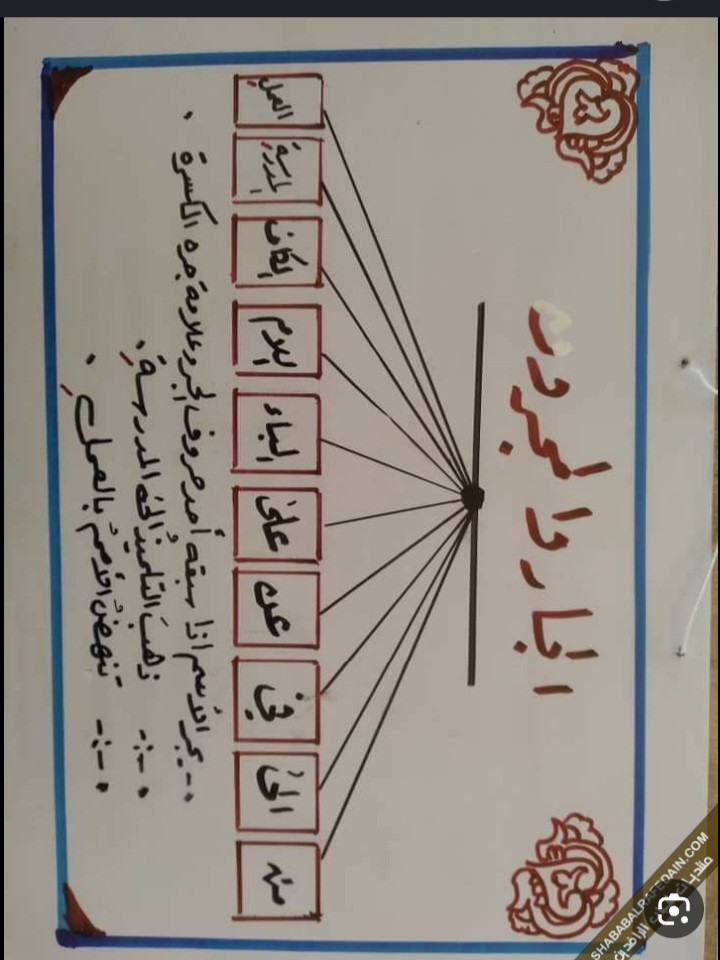 الجار والمجرور
من
الى
في
عن
على
الباء
اللام
الكاف
المدرسةِ
العملِ
يجر الأسم اذا سبقه أحد حروف الجر وعلامة جره الكسرة .
ذهبَ التلميذُ الى المدرسةِ .
تنهضُ الأممُ بالعملِ .
SHABABALRAFEDAIN.COM